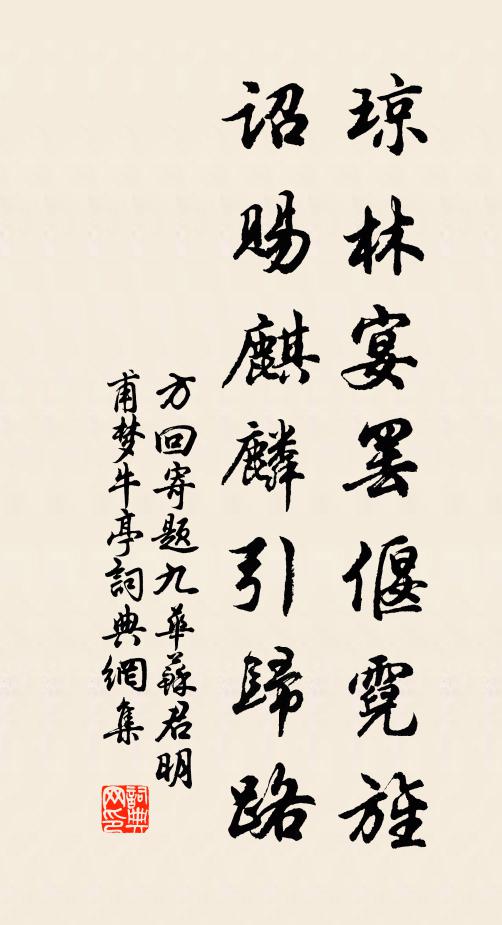 琼林宴罢偃霓旌
诏赐麒麟引歸路
方回寄题九華蘇君明
甫梦牛亭詞典網集
詞典网印